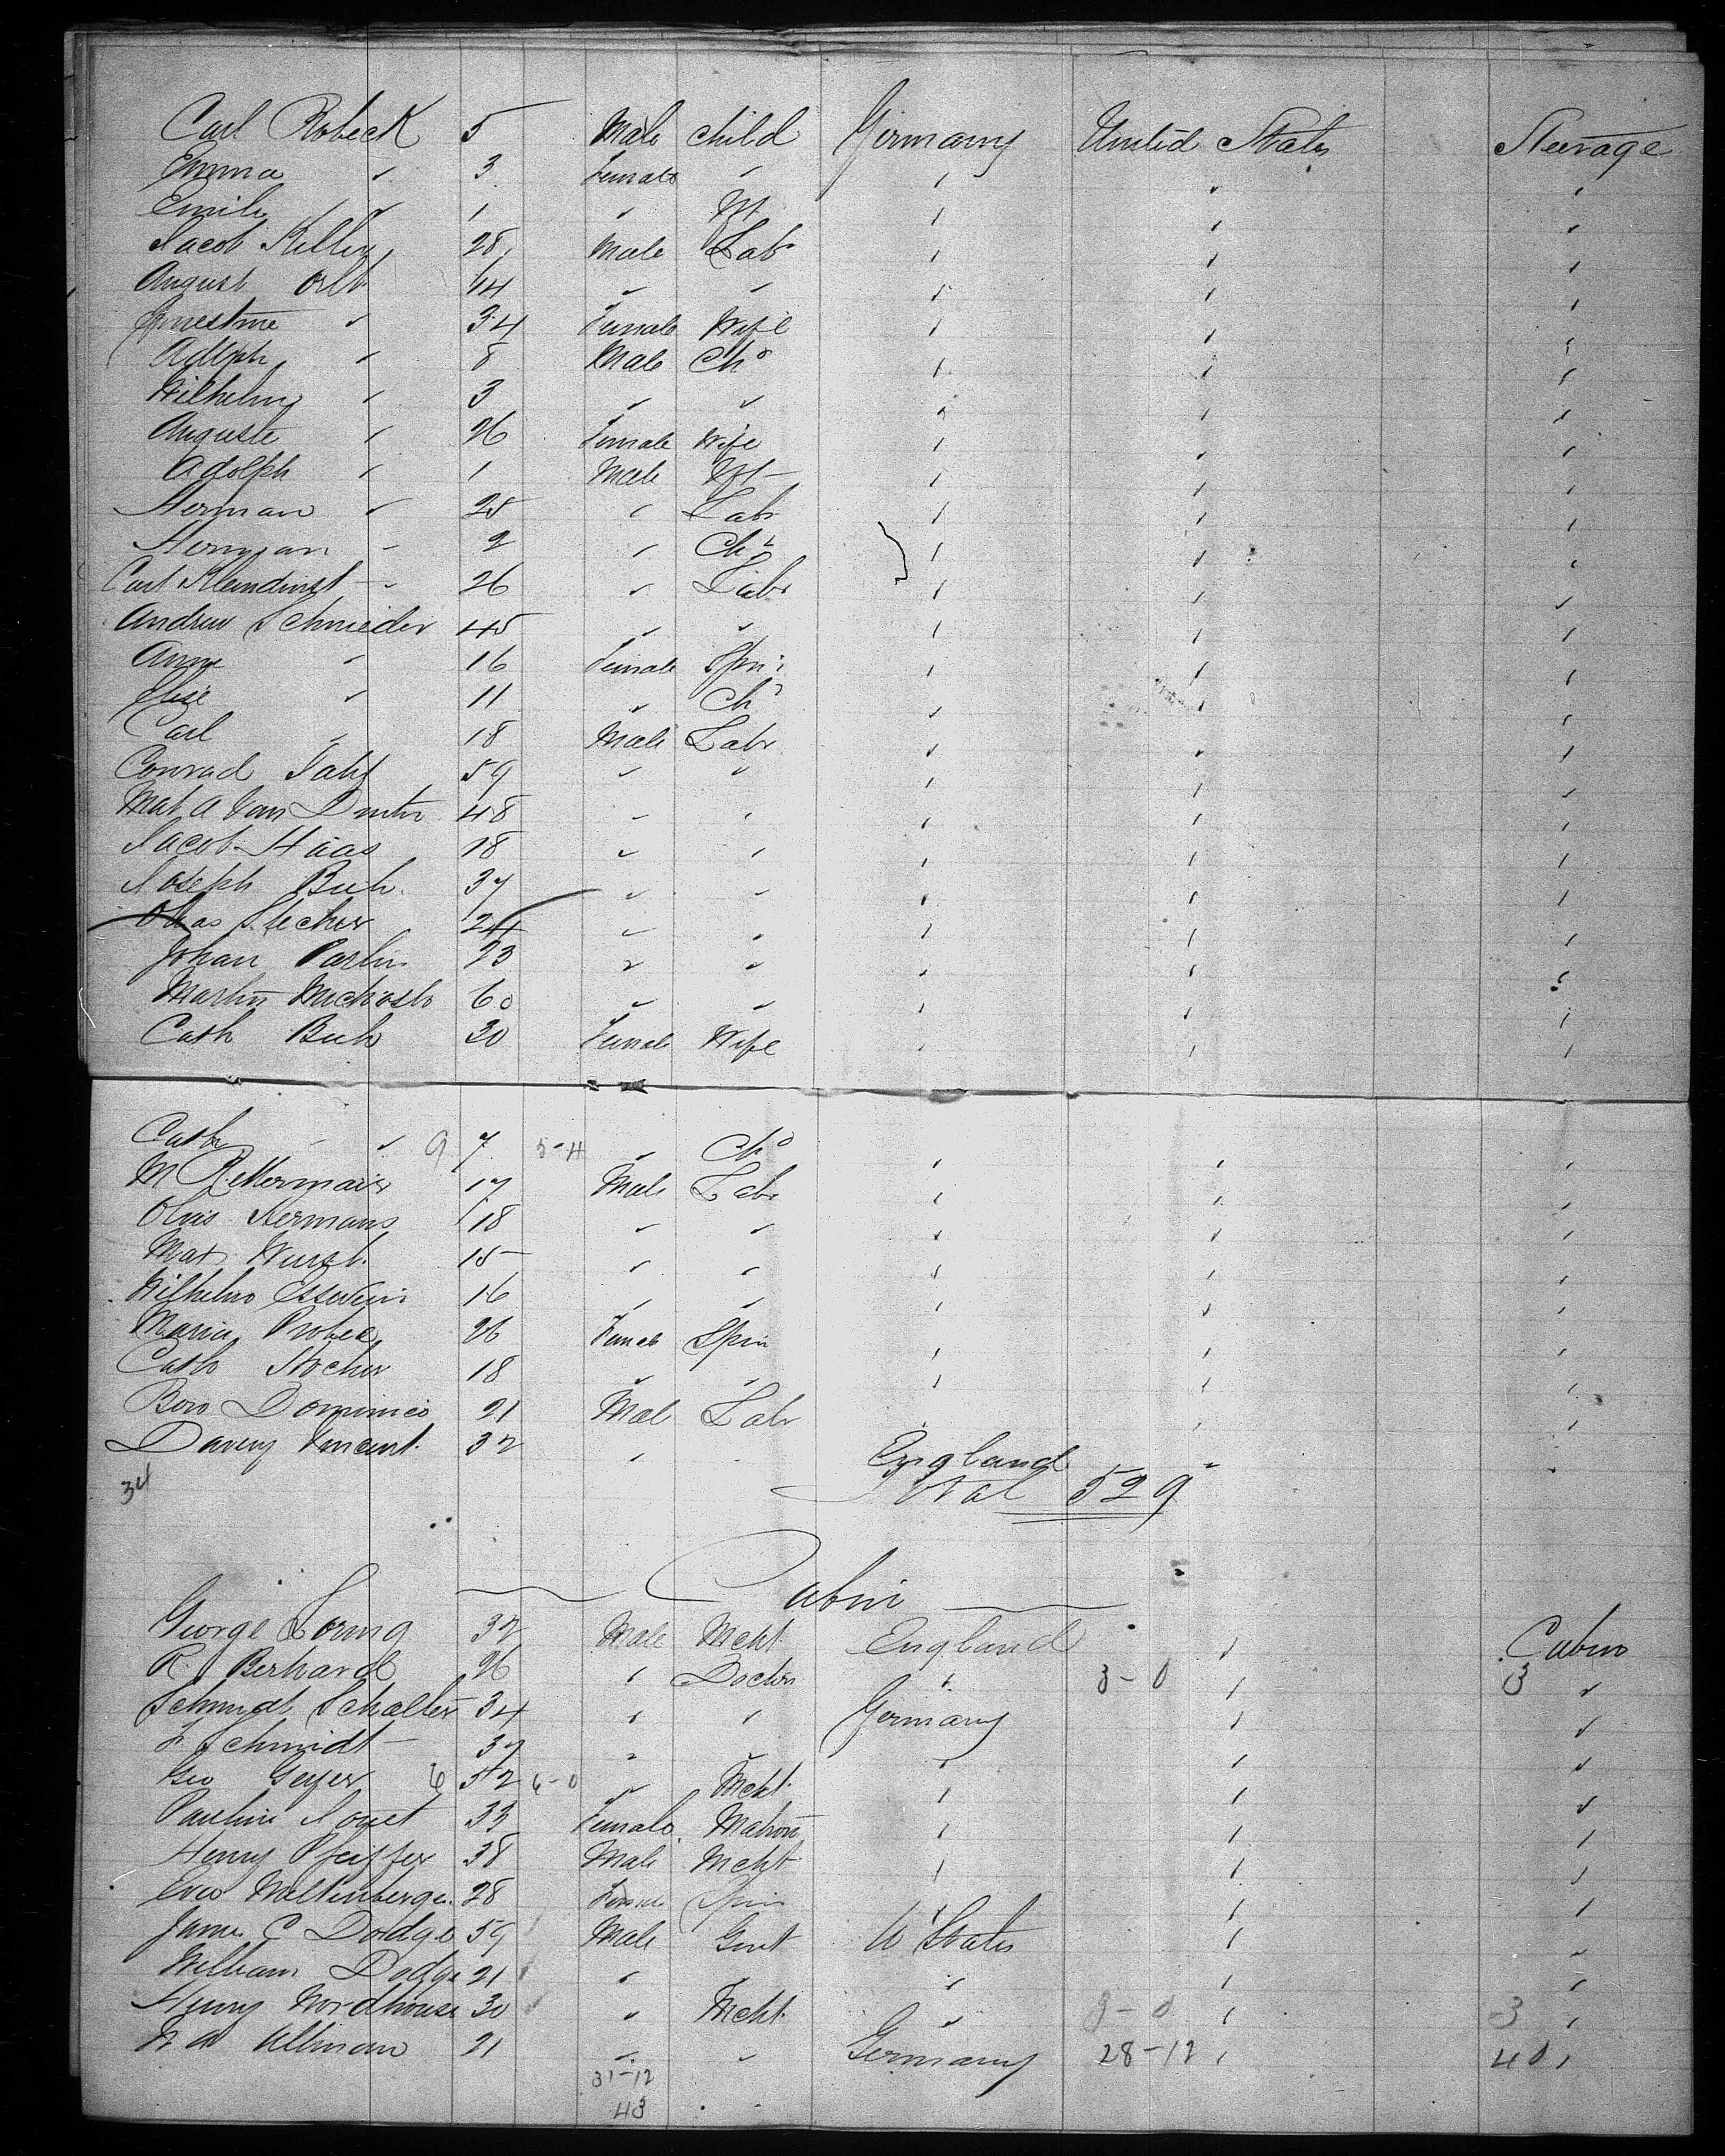 Carl Robeck 5 Male Child Germany United States Steerage
Emma " 3 Female " " " "
Emily " 1 " Inf " " "
Jacob Keller 28 Male Labr " " "
August Orlt 44 " " " " "
Ernestine " 34 Female Wife " " "
Adolph " 8 Male Chd " " "
Wilhelm " 3 " " " " "
Auguste " 26 Female Wife " " "
Adolph " 1 Male Inf " " "
Herman " 25 " Labr " " "
Herman " 2 " Chd " " "
Carl Kleindinst 26 " Labr " " "
Andrew Schnieder 45 " " " " "
Anna " 16 Female Spin " " "
Elise " 11 " Chd " " "
Carl " 18 Male Labr " " "
Conrad 59 " " " " "
Mat A Van 48 " " " " "
Jacob Haas 18 " " " " "
Joseph Buh 37 " " " " "
24 " " " " "
Johan 23 " " " " "
Martin 60 " " " " "
Cath Buh 30 Female Wife " " "
Cath " 9 7 5-4 " Chd " " "
M 17 Male Labr " " "
Hermans 18 " " " " "
15 " " " " "
Wilhelm 16 " " " " "
Maria 26 Female Spin " " "
Cath Stocker 18 " " " " "
Dominico 21 Male Labr " " "
Davey Vincent 32 " " England " "
34 Total 529
Cabin
George Loring 32 Male Mcht England " Cabin
R. Berhard 26 " Doctor " 3-0 " 3 "
Schmidt Schalter 34 " " Germany " "
F Schmidt 37 " " " " "
Geo Geyer 6 52 6-0 " Mcht " " "
Pauline 33 Female Matron " " "
Henry Pfeiffer 38 Male Mcht " " "
Miltenberger 28 Female Spin " " "
James C Dodge 59 Male Gent U States " "
William Dodge 21 " " " "
Henry Nordhouse 30 " Mcht " 3-0 " 3 "
Ullman 21 " " Germany 28-12 " 40 "
31-12
43